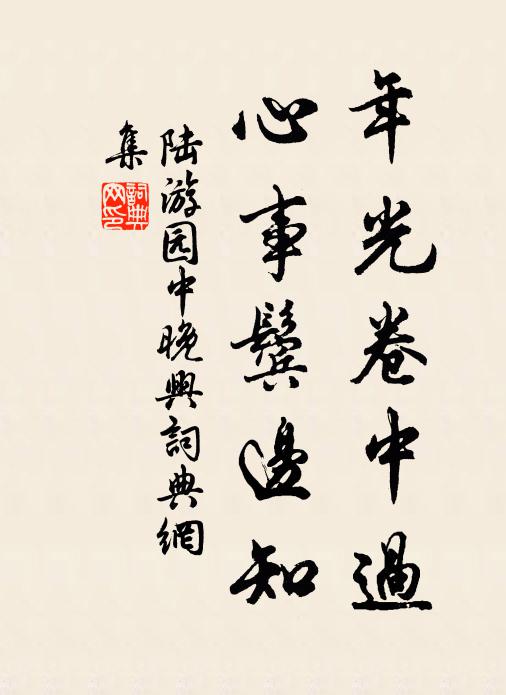 年光卷中過
心事鬓邊知
陆游园中晚興詞典網
集
詞典網印